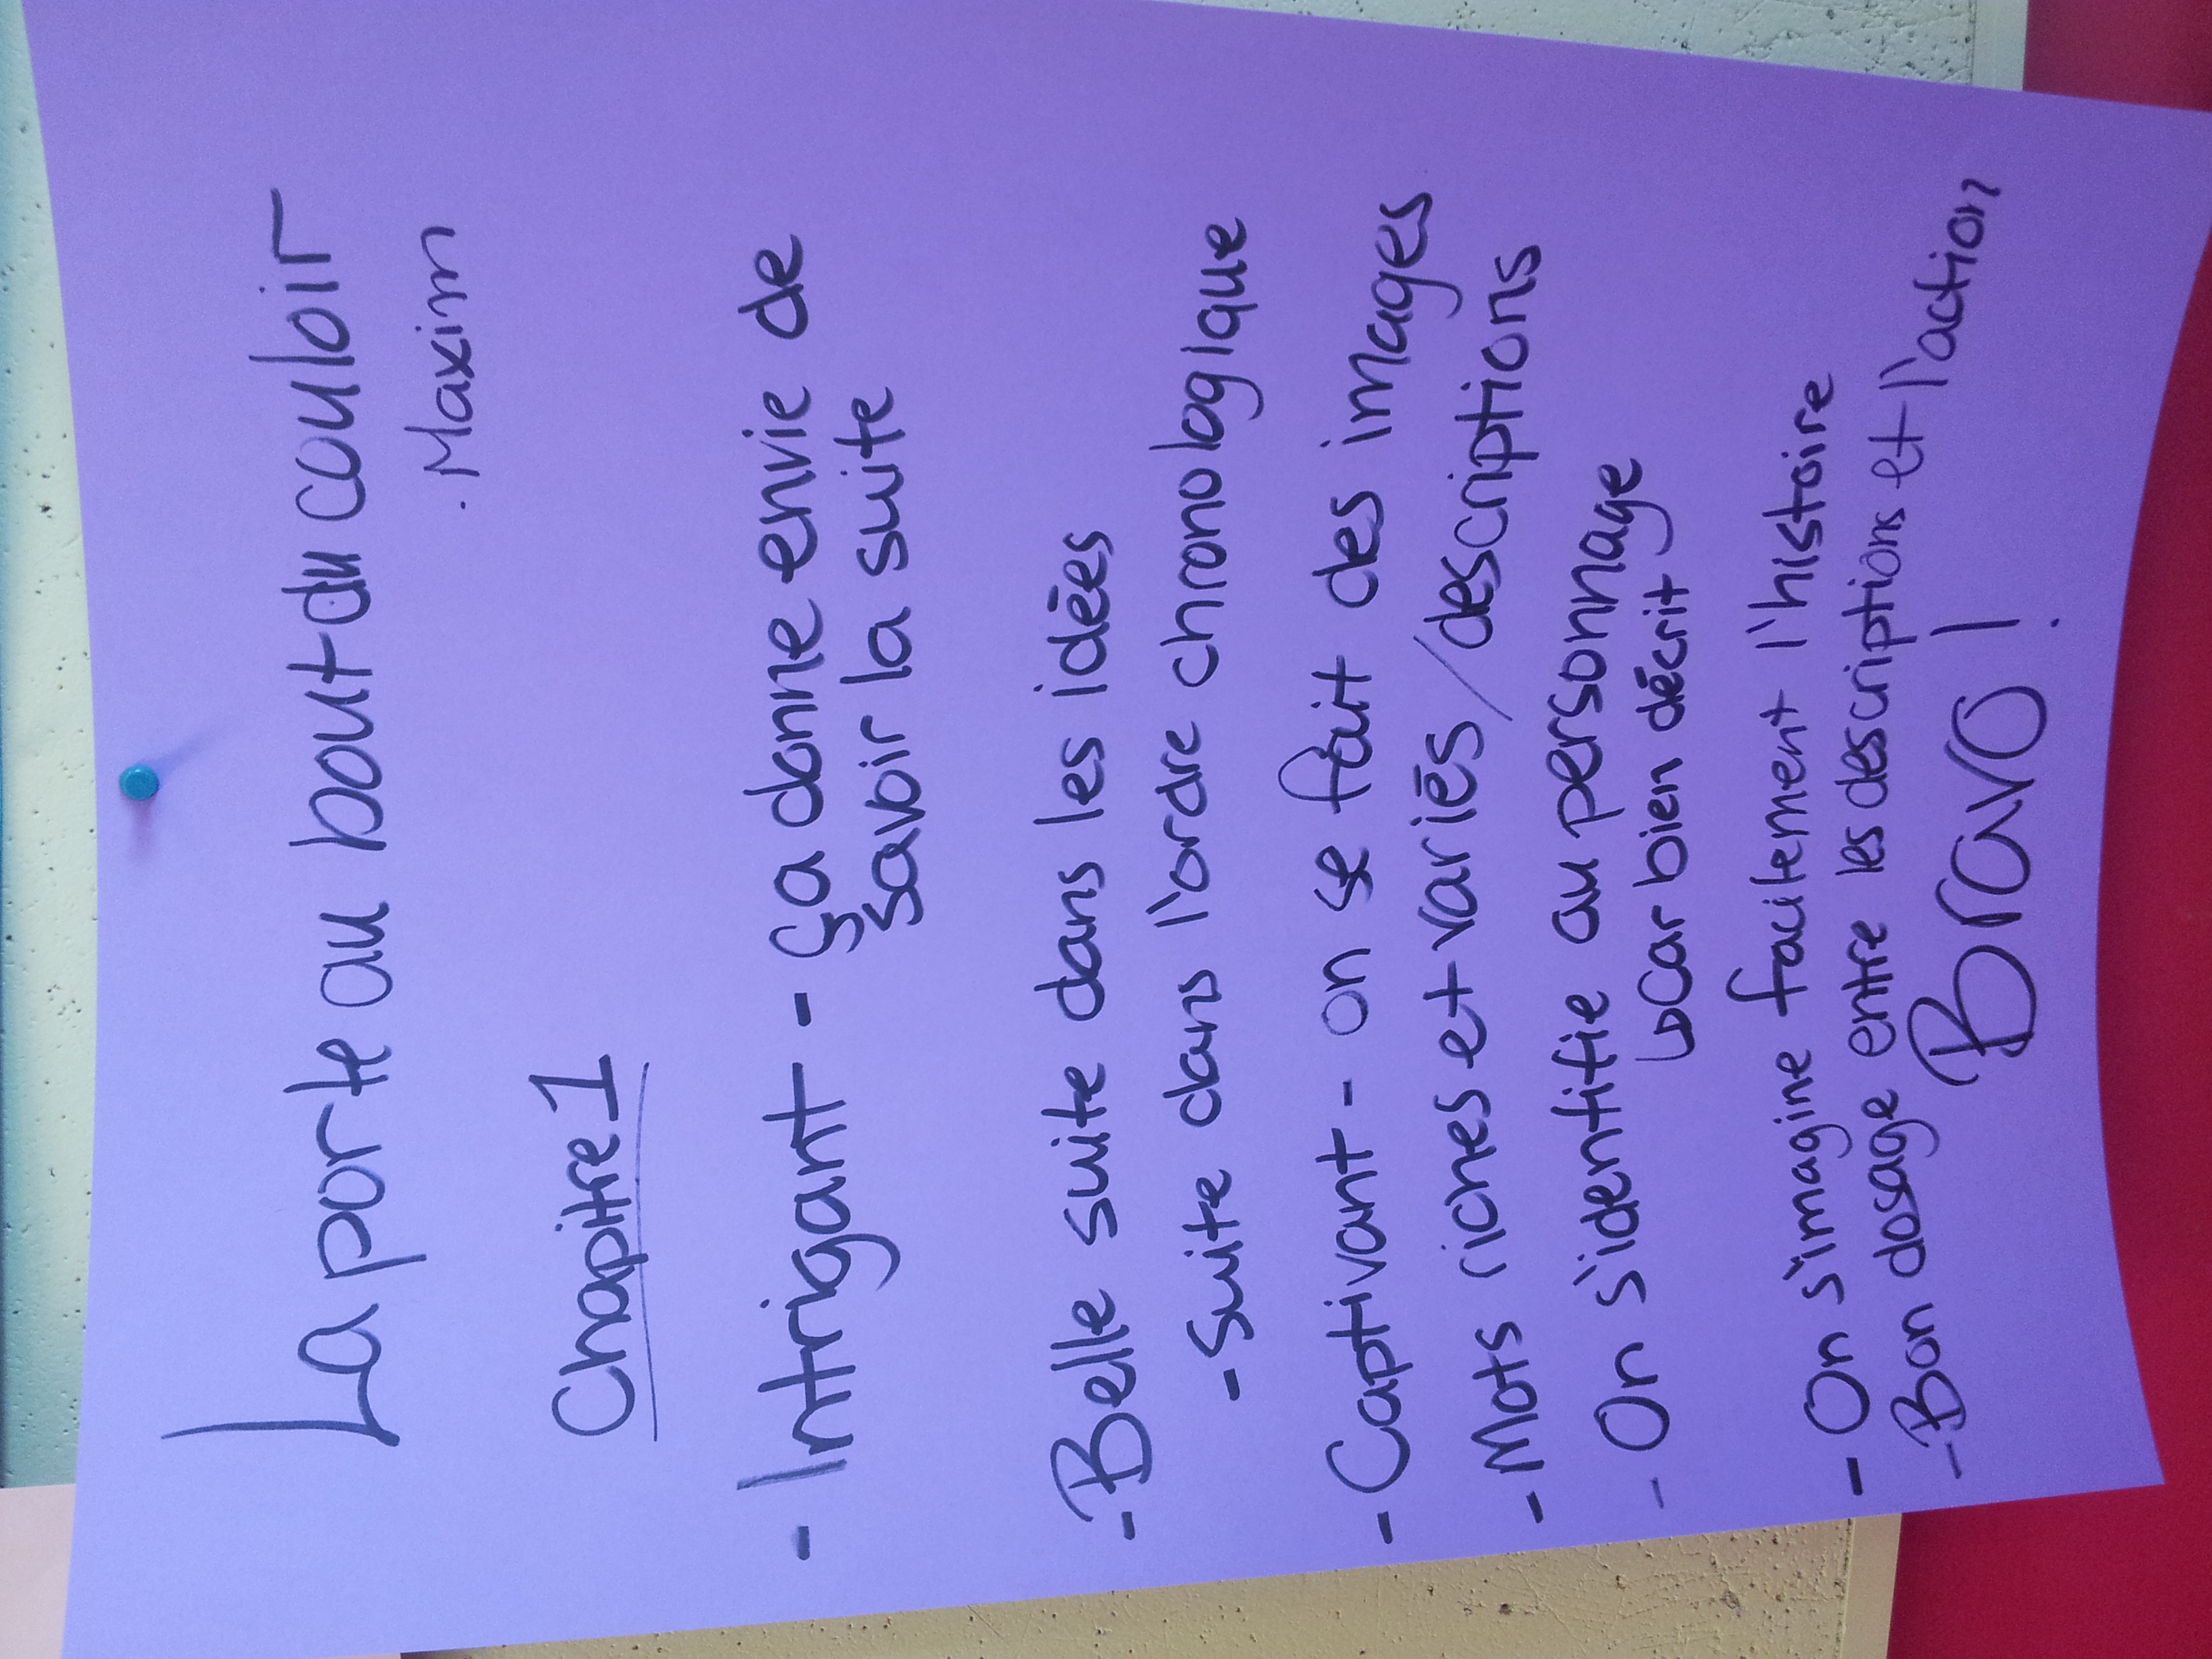 La porte au bout du couloir
. Maxim
Chapitre 1
- Intrigant - ça donne envie de
savoir la suite
- Belle suite dans les idées
- suite dans l'ordre chronologique
- Captivant - on se fait des images
- Mots riches et variés / descriptions
- On s'identifie au personnage
↳ car bien décrit
- On s'imagine facilement l'histoire
- Bon dosage entre les descriptions et l'action
Bravo !